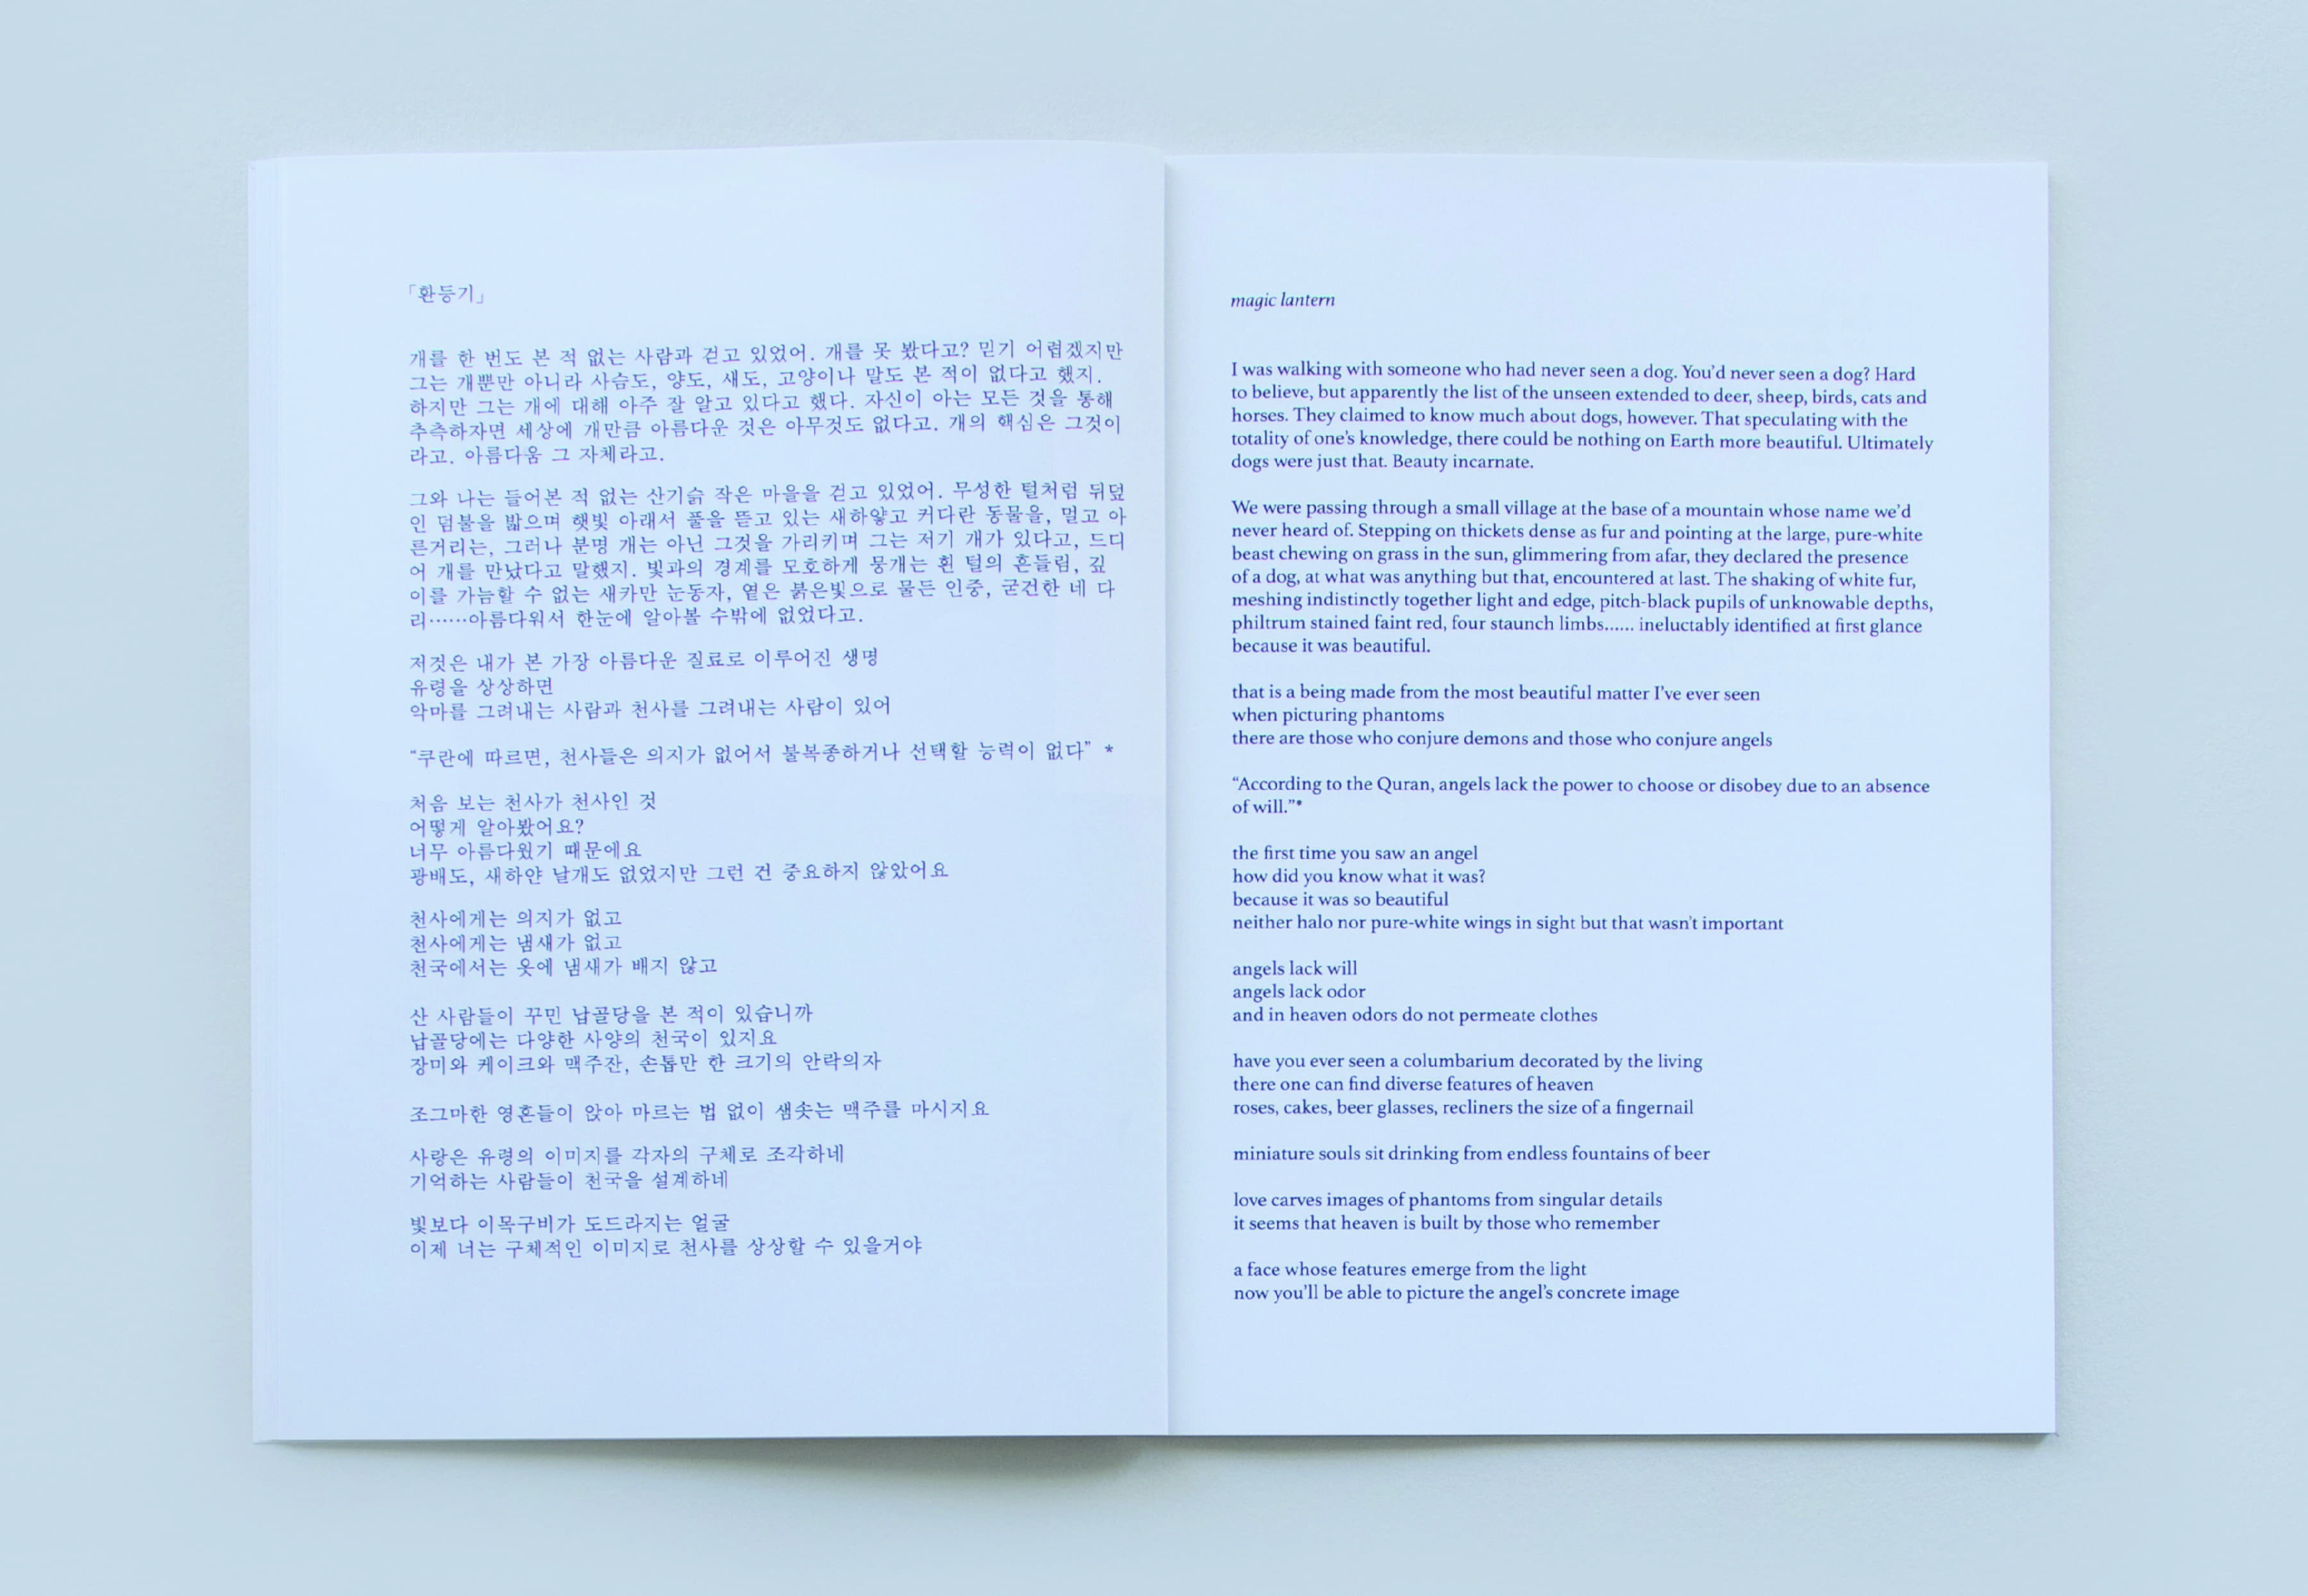 「환등기」
개를 한 번도 본 적 없는 사람과 걷고 있었어. 개를 못 봤다고? 믿기 어렵겠지만
그는 개뿐만 아니라 사슴도, 양도, 새도, 고양이나 말도 본 적이 없다고 했지.
하지만 그는 개에 대해 아주 잘 알고 있다고 했다. 자신이 아는 모든 것을 통해
추측하자면 세상에 개만큼 아름다운 것은 아무것도 없다고. 개의 핵심은 그것이
라고. 아름다움 그 자체라고.
그와 나는 들어본 적 없는 산기슭 작은 마을을 걷고 있었어. 무성한 털처럼 뒤덮
인 덤불을 밟으며 햇빛 아래서 풀을 뜯고 있는 새하얗고 커다란 동물을, 멀고 아
른거리는, 그러나 분명 개는 아닌 그것을 가리키며 그는 저기 개가 있다고, 드디
어 개를 만났다고 말했지. 빛과의 경계를 모호하게 뭉개는 흰 털의 흔들림, 깊
이를 가늠할 수 없는 새카만 눈동자, 옅은 붉은빛으로 물든 인중, 굳건한 네 다
리……아름다워서 한눈에 알아볼 수밖에 없었다고.
저것은 내가 본 가장 아름다운 질료로 이루어진 생명
유령을 상상하면
악마를 그려내는 사람과 천사를 그려내는 사람이 있어
“쿠란에 따르면, 천사들은 의지가 없어서 불복종하거나 선택할 능력이 없다” *
처음 보는 천사가 천사인 것
어떻게 알아봤어요?
너무 아름다웠기 때문에요
광배도, 새하얀 날개도 없었지만 그런 건 중요하지 않았어요
천사에게는 의지가 없고
천사에게는 냄새가 없고
천국에서는 옷에 냄새가 배지 않고
산 사람들이 꾸민 납골당을 본 적이 있습니까
납골당에는 다양한 사양의 천국이 있지요
장미와 케이크와 맥주잔, 손톱만 한 크기의 안락의자
조그마한 영혼들이 앉아 마르는 법 없이 샘솟는 맥주를 마시지요
사랑은 유령의 이미지를 각자의 구체로 조각하네
기억하는 사람들이 천국을 설계하네
빛보다 이목구비가 도드라지는 얼굴
이제 너는 구체적인 이미지로 천사를 상상할 수 있을거야
magic lantern
I was walking with someone who had never seen a dog. You’d never seen a dog? Hard
to believe, but apparently the list of the unseen extended to deer, sheep, birds, cats and
horses. They claimed to know much about dogs, however. That speculating with the
totality of one’s knowledge, there could be nothing on Earth more beautiful. Ultimately
dogs were just that. Beauty incarnate.
We were passing through a small village at the base of a mountain whose name we’d
never heard of. Stepping on thickets dense as fur and pointing at the large, pure-white
beast chewing on grass in the sun, glimmering from afar, they declared the presence
of a dog, at what was anything but that, encountered at last. The shaking of white fur,
meshing indistinctly together light and edge, pitch-black pupils of unknowable depths,
philtrum stained faint red, four staunch limbs...... ineluctably identified at first glance
because it was beautiful.
that is a being made from the most beautiful matter I’ve ever seen
when picturing phantoms
there are those who conjure demons and those who conjure angels
“According to the Quran, angels lack the power to choose or disobey due to an absence
of will.”*
the first time you saw an angel
how did you know what it was?
because it was so beautiful
neither halo nor pure-white wings in sight but that wasn’t important
angels lack will
angels lack odor
and in heaven odors do not permeate clothes
have you ever seen a columbarium decorated by the living
there one can find diverse features of heaven
roses, cakes, beer glasses, recliners the size of a fingernail
miniature souls sit drinking from endless fountains of beer
love carves images of phantoms from singular details
it seems that heaven is built by those who remember
a face whose features emerge from the light
now you’ll be able to picture the angel’s concrete image